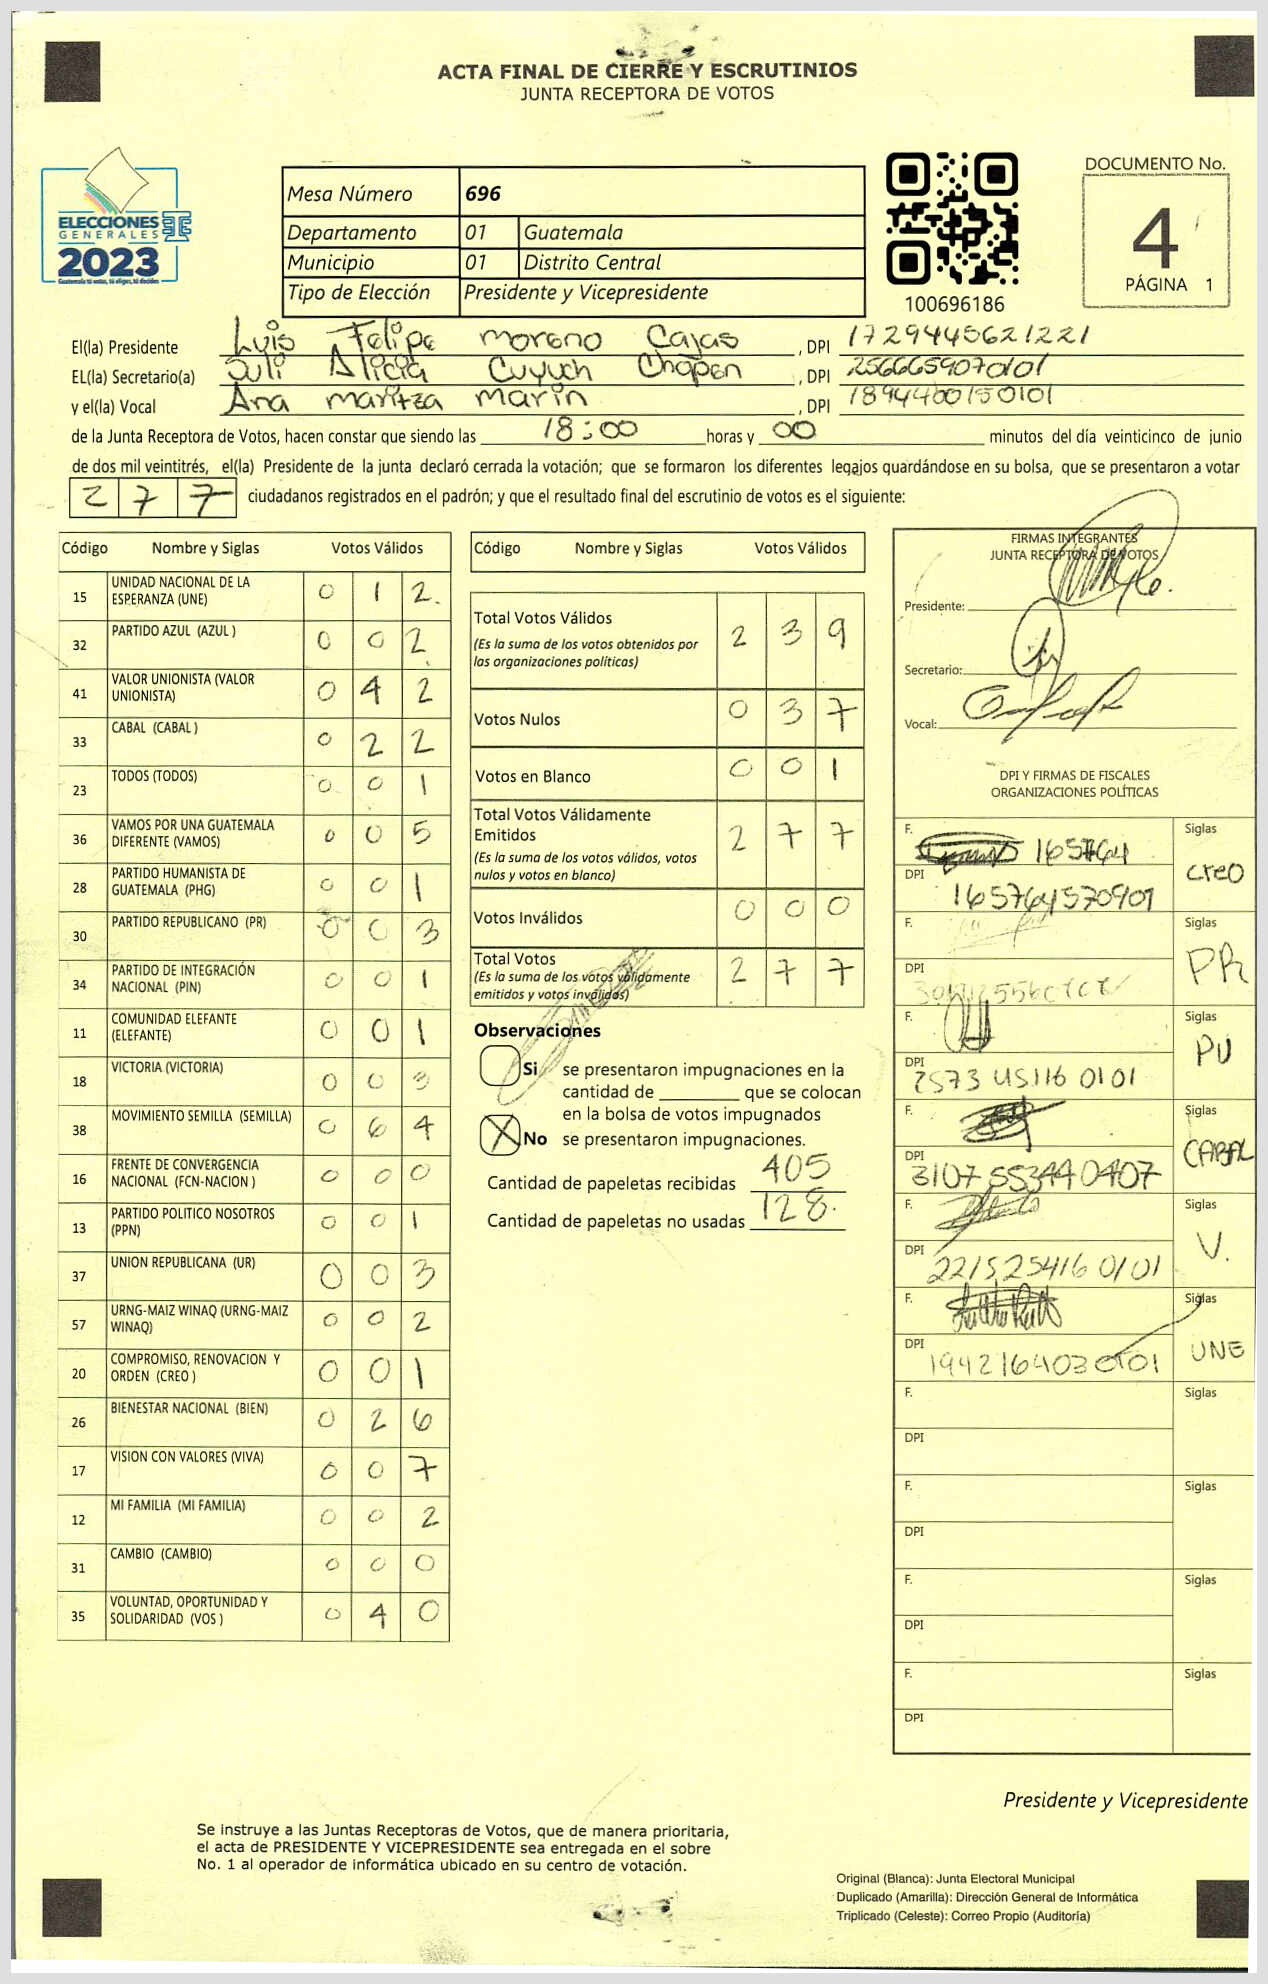 ACTA FINAL DE CIERRE Y ESCRUTINIOS
JUNTA RECEPTORA DE VOTOS
ELECCIONES
GENERALES
2023
Guatemala tú votas, tú eliges, tú decides
Mesa Número 696
Departamento 01 Guatemala
Municipio 01 Distrito Central
Tipo de Elección Presidente y Vicepresidente
100696186
DOCUMENTO No.
4
PÁGINA 1
El(la) Presidente Luis Felipe Moreno Cajas , DPI 1729445621221
EL(la) Secretario(a) Juli Alicia Cuyuch Chapen , DPI 2566659070101
y el(la) Vocal Ana maritza marin , DPI 1894400150101
de la Junta Receptora de Votos, hacen constar que siendo las 18:00 horas y 00 minutos del día veinticinco de junio
de dos mil veintitrés, el(la) Presidente de la junta declaró cerrada la votación; que se formaron los diferentes legajos guardándose en su bolsa, que se presentaron a votar
277 ciudadanos registrados en el padrón; y que el resultado final del escrutinio de votos es el siguiente:
Código Nombre y Siglas Votos Válidos
15 UNIDAD NACIONAL DE LA ESPERANZA (UNE) 0 1 2
32 PARTIDO AZUL (AZUL ) 0 0 2
41 VALOR UNIONISTA (VALOR UNIONISTA) 0 4 2
33 CABAL (CABAL ) 0 2 2
23 TODOS (TODOS) 0 0 1
36 VAMOS POR UNA GUATEMALA DIFERENTE (VAMOS) 0 0 5
28 PARTIDO HUMANISTA DE GUATEMALA (PHG) 0 0 1
30 PARTIDO REPUBLICANO (PR) 0 0 3
34 PARTIDO DE INTEGRACIÓN NACIONAL (PIN) 0 0 1
11 COMUNIDAD ELEFANTE (ELEFANTE) 0 0 1
18 VICTORIA (VICTORIA) 0 0 3
38 MOVIMIENTO SEMILLA (SEMILLA) 0 6 4
16 FRENTE DE CONVERGENCIA NACIONAL (FCN-NACION ) 0 0 0
13 PARTIDO POLITICO NOSOTROS (PPN) 0 0 1
37 UNION REPUBLICANA (UR) 0 0 3
57 URNG-MAIZ WINAQ (URNG-MAIZ WINAQ) 0 0 2
20 COMPROMISO, RENOVACION Y ORDEN (CREO ) 0 0 1
26 BIENESTAR NACIONAL (BIEN) 0 2 6
17 VISION CON VALORES (VIVA) 0 0 7
12 MI FAMILIA (MI FAMILIA) 0 0 2
31 CAMBIO (CAMBIO) 0 0 0
35 VOLUNTAD, OPORTUNIDAD Y SOLIDARIDAD (VOS ) 0 4 0
Código Nombre y Siglas Votos Válidos
Total Votos Válidos 2 3 9
(Es la suma de los votos obtenidos por
las organizaciones políticas)
Votos Nulos 0 3 7
Votos en Blanco 0 0 1
Total Votos Válidamente
Emitidos 2 7 7
(Es la suma de los votos válidos, votos
nulos y votos en blanco)
Votos Inválidos 0 0 0
Total Votos 2 7 7
(Es la suma de los votos válidamente
emitidos y votos inválidos)
Observaciones
Si se presentaron impugnaciones en la
cantidad de ________ que se colocan
en la bolsa de votos impugnados
X No se presentaron impugnaciones.
Cantidad de papeletas recibidas 405
Cantidad de papeletas no usadas 128
FIRMAS INTEGRANTES
JUNTA RECEPTORA DE VOTOS
Presidente:
Secretario:
Vocal:
DPI Y FIRMAS DE FISCALES
ORGANIZACIONES POLÍTICAS
F. 165764 Siglas
DPI 165764570901 creo
F. Siglas
DPI PR
F. Siglas
DPI 2573 45116 0101 PU
F. Siglas
DPI 3107 55344 0407 CABAL
F. Siglas
DPI 221525416 0101 V.
F. Siglas
DPI 1942164030101 UNE
F. Siglas
DPI
F. Siglas
DPI
F. Siglas
DPI
F. Siglas
DPI
Presidente y Vicepresidente
Se instruye a las Juntas Receptoras de Votos, que de manera prioritaria,
el acta de PRESIDENTE Y VICEPRESIDENTE sea entregada en el sobre
No. 1 al operador de informática ubicado en su centro de votación.
Original (Blanca): Junta Electoral Municipal
Duplicado (Amarilla): Dirección General de Informática
Triplicado (Celeste): Correo Propio (Auditoría)